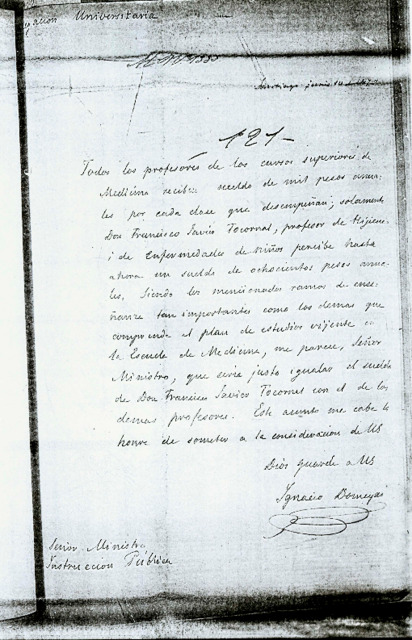 Universitaria
Santiago junio
121-
Todos los profesores de los cursos superiores de
Medicina reciben sueldo de mil pesos anua-
les por cada clase que desempeñan; solamente
Don Francisco Javier Tocornal, profesor de Hijiene
i de Enfermedades de niños percibe hasta
ahora un sueldo de ochocientos pesos anua-
les. Siendo los mencionados ramos de ense-
ñanza tan importantes como los demas que
comprende el plan de estudios vijente en
la Escuela de Medicina, me parece, Señor
Ministro, que seria justo igualar el sueldo
de Don Francisco Javier Tocornal con el de los
demas profesores. Este asunto me cabe la
honra de someter a la consideracion de US
Dios guarde a US
Ignacio Domeyko
Señor Ministro
Instruccion Pública